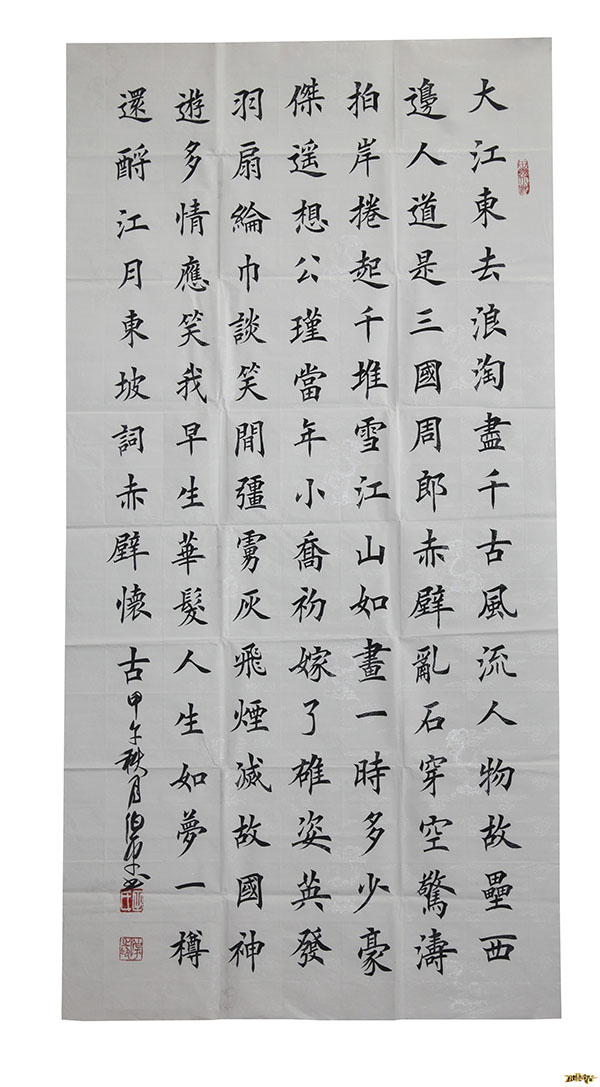 大江東去浪淘盡千古風流人物故壘西
邊人道是三國周郎赤壁亂石穿空驚濤
拍岸捲起千堆雪江山如畫一時多少豪
傑遥想公瑾當年小喬初嫁了雄姿英發
羽扇綸巾談笑間彊虜灰飛煙滅故國神
遊多情應笑我早生華髮人生如夢一樽
還酹江月東坡詞赤壁懷古甲午秋月